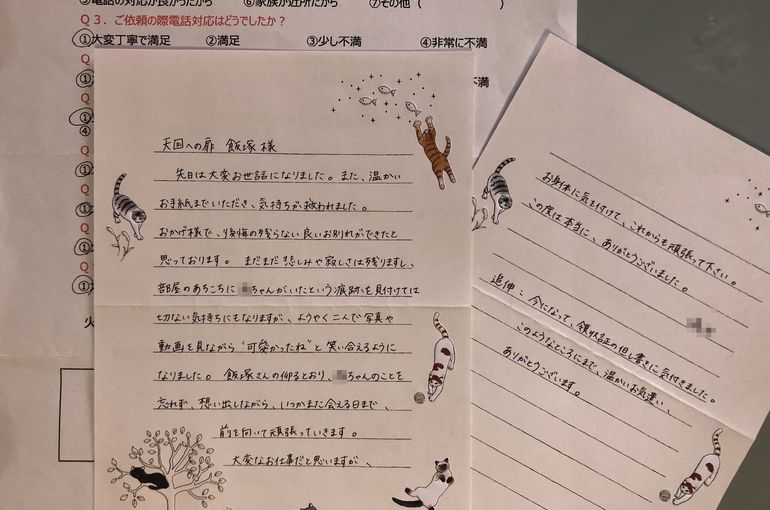 ⑤電話の対応が良かったから　⑥家族が近所だから　⑦その他（　　　　　）
Q3．ご依頼の際電話対応はどうでしたか？
①大変丁寧で満足　②満足　③少し不満　④非常に不満
①
Q
満
①
④
Q
①
Q
①
Q
①
Q
①
Q
①
火
天国への扉　飯塚 様
先日は大変お世話になりました。また、温かい
お手紙までいただき、気持ちが救われました。
おかげ様で、後悔の残らない良いお別れができたと
思っております。まだまだ悲しみや寂しさは残りますし、
部屋のあちこちに ちゃんがいたという痕跡を見付けては
切ない気持ちにもなりますが、ようやく二人で写真や
動画を見ながら“可愛かったね”と笑い合えるように
なりました。飯塚さんの仰るとおり、 ちゃんのことを
忘れず、想い出しながら、いつかまた会える日まで、
前を向いて頑張っていきます。
大変なお仕事だと思いますが、
お身体に気を付けて、これからも頑張って下さい。
この度は本当に、ありがとうございました。
追伸：今になって、領収証の但し書きに気付きました。
このようなところにまで、温かいお気遣い、
ありがとうございます。